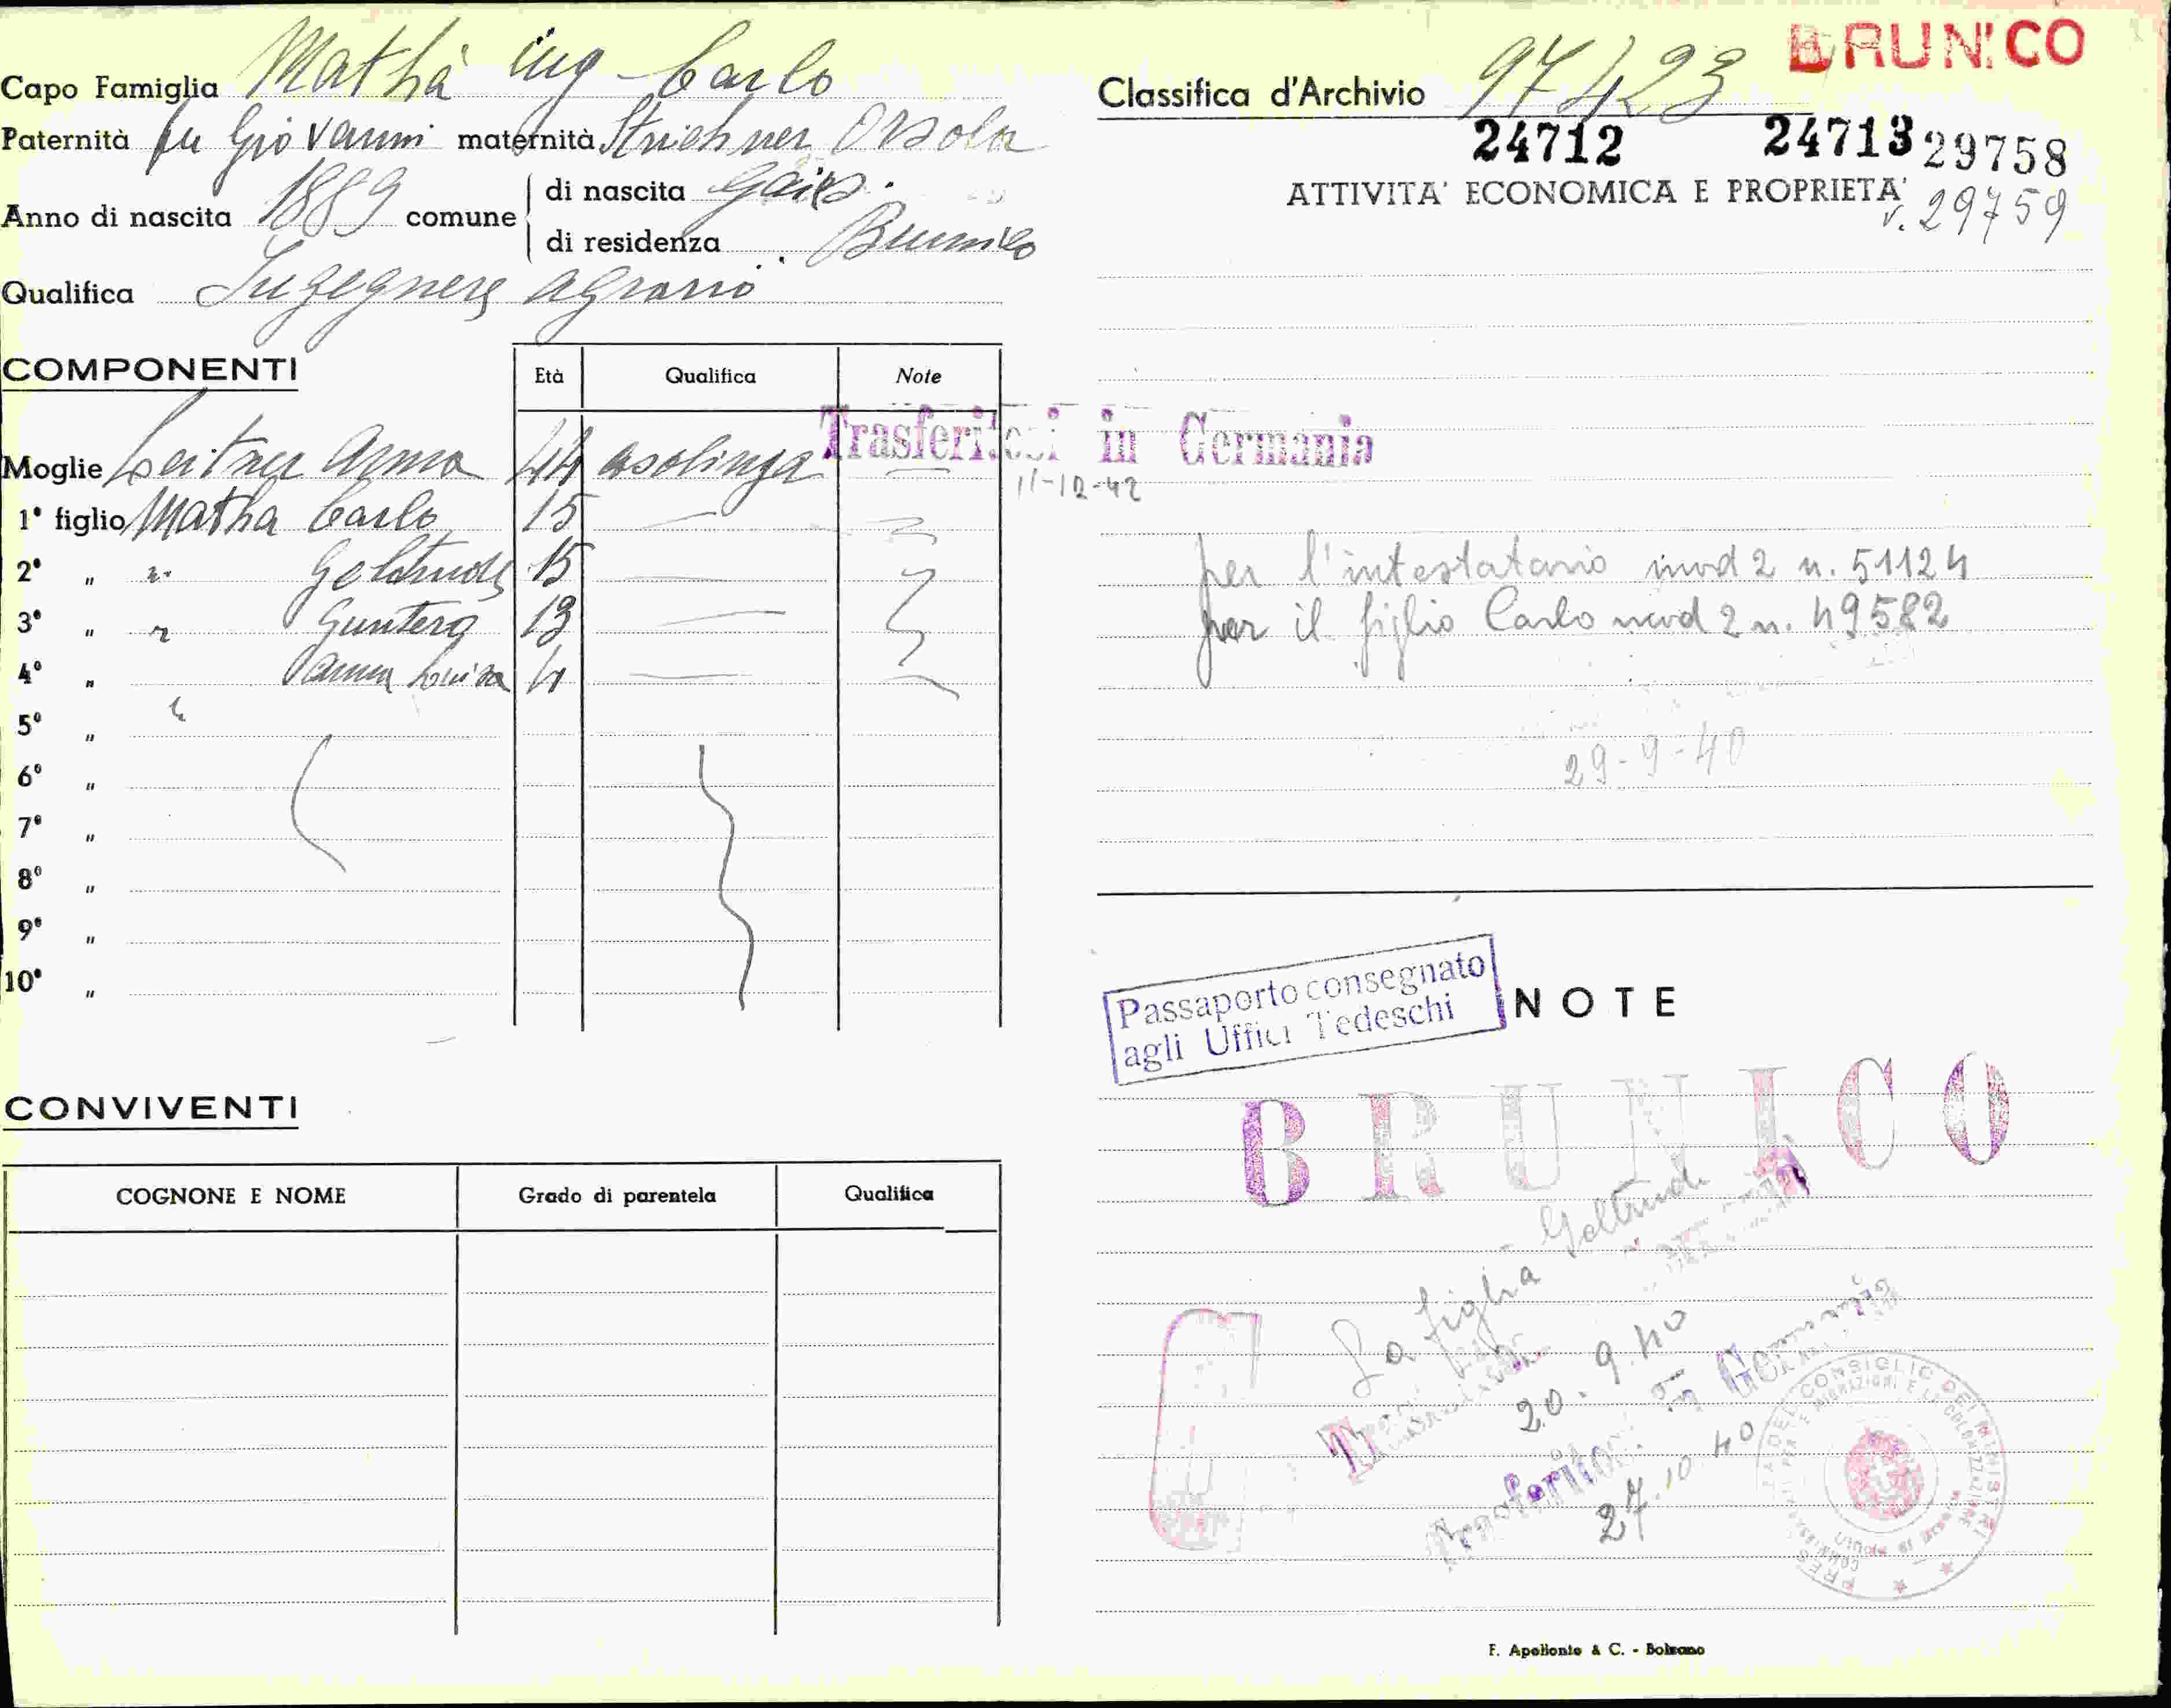 BRUNICO
Capo Famiglia Mathà ing Carlo
Paternità fu Giovanni maternità Orsola
Anno di nascita 1889 comune di nascita Gais
di residenza Brunico
Qualifica Ingegnere agrario
COMPONENTI
Età Qualifica Note
Moglie Leitner Anna 44 casalinga
1° figlio Matha Carlo 15
2° " " Geltrude 15
3° " " Guntero 13
4° " Anna Louisa 4
5° "
6° "
7° "
8° "
9° "
10° "
CONVIVENTI
COGNONE E NOME Grado di parentela Qualifica
Classifica d'Archivio 97423
24712 24713 29758
ATTIVITA' ECONOMICA E PROPRIETA'
v. 29759
Trasferitosi in Germania
11-12-42
per l'intestatario mod 2 n. 51124
per il figlio Carlo mod 2 n. 49582
29-9-40
Passaporto consegnato
agli Uffici Tedeschi
NOTE
BRUNICO
La figlia Geltrude
20.9.40
Trasferitosi in Germania
27.10.40
F. Apollonio & C. - Bolzano